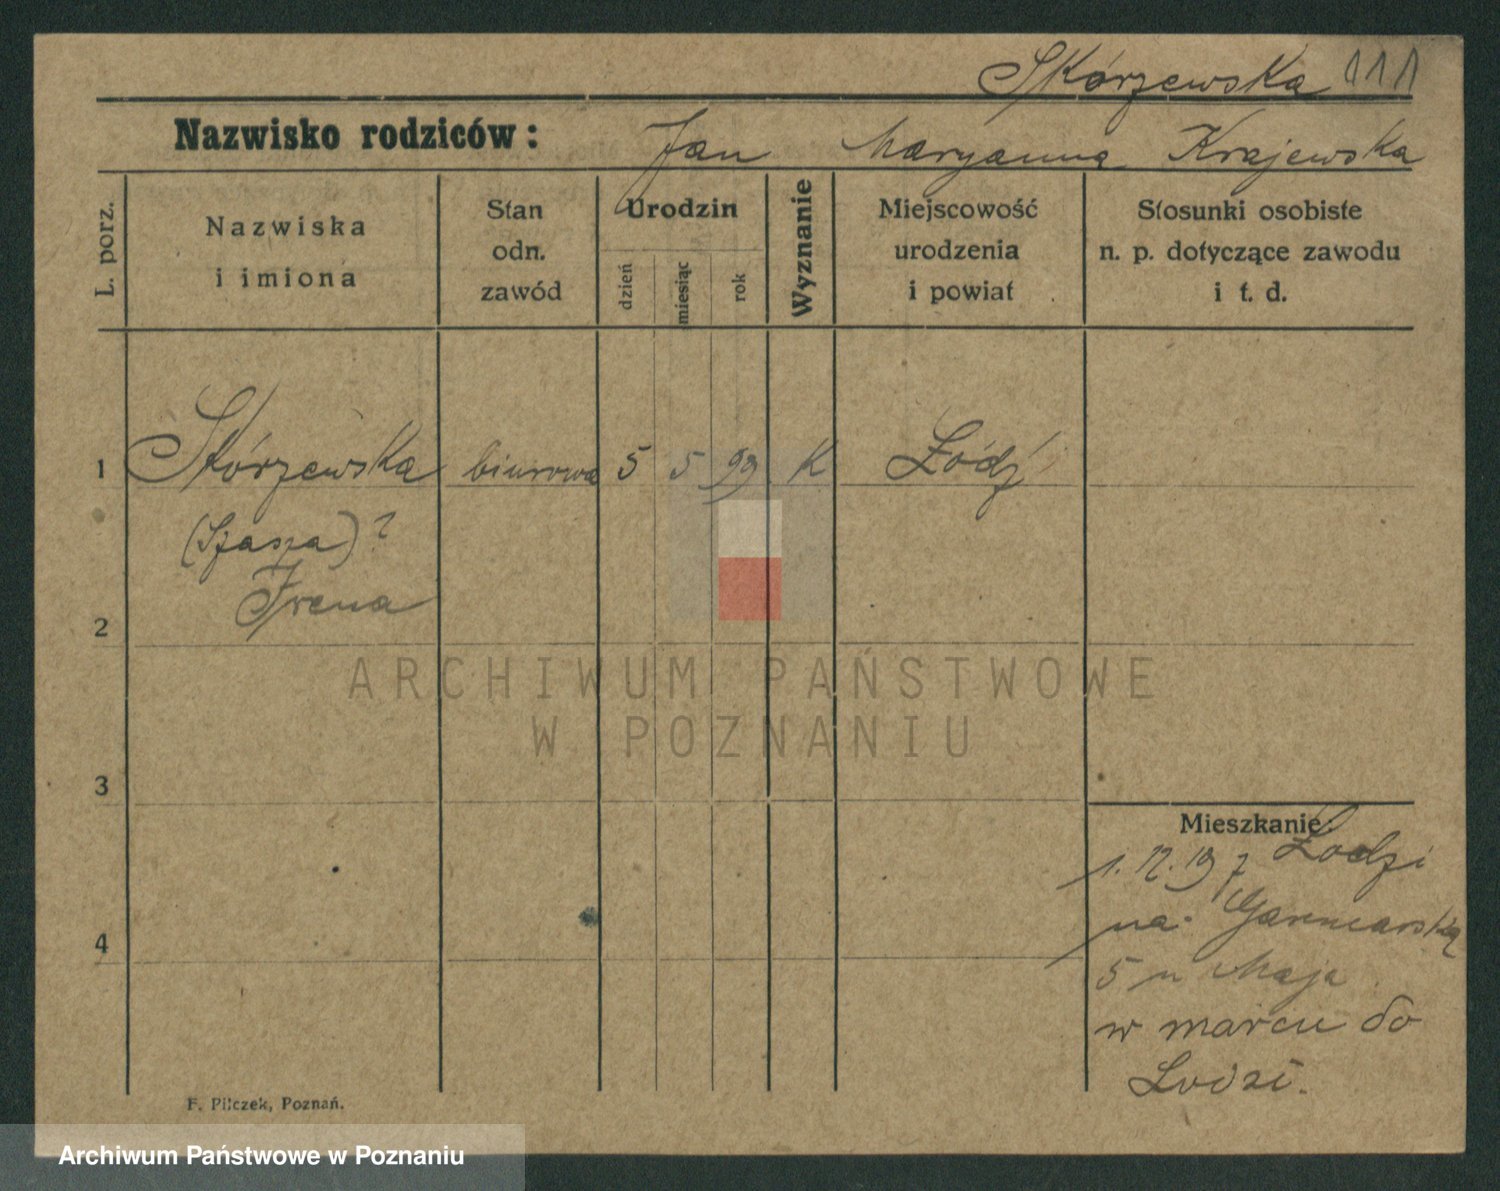 Skórzewska 111
Nazwisko rodziców: Jan Maryanna Krajewska
L. porz.
Nazwiska
i imiona
Stan
odn.
zawód
Urodzin
dzień
miesiąc
rok
Wyznanie
Miejscowość
urodzenia
i powiat
Stosunki osobiste
n. p. dotyczące zawodu
i t. d.
1 Skórzewska biurowa 5 5 99 K Łódź
(Szasza)?
Irena
2
3
4
Mieszkanie:
1. 12. 19 z Łodzi
na Garncarską
5 u Maja
w marcu do
Łodzi.
F. Pilczek, Poznań.
ARCHIWUM PAŃSTWOWE
W POZNANIU
Archiwum Państwowe w Poznaniu